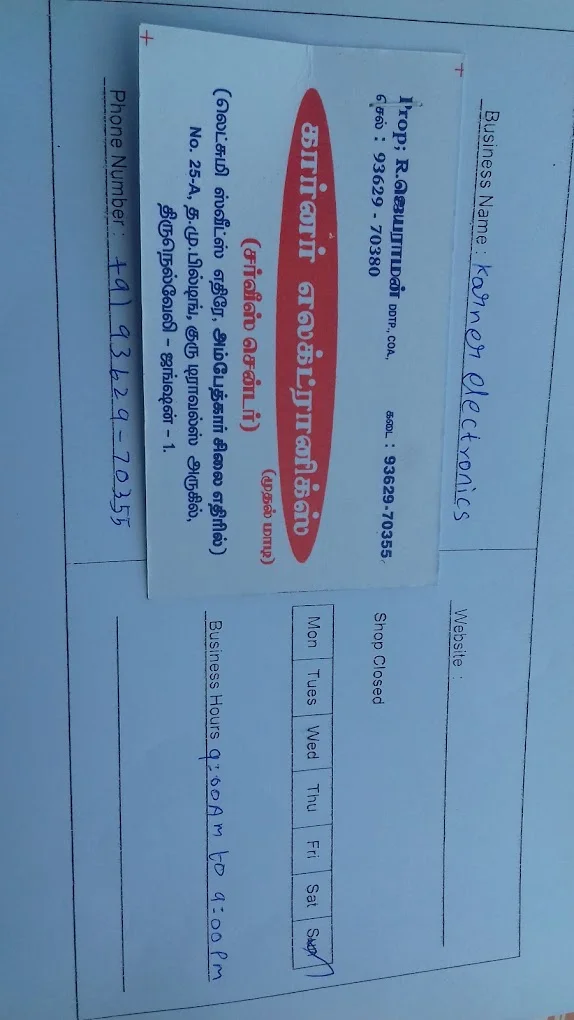 Business Name : Karner electronics
Prop; R.ஜெயராமன் DDTP., COA,
செல் : 93629 - 70380
கடை : 93629-70355
கார்னர் எலக்ட்ரானிக்ஸ்
(முதல் மாடி)
(சர்வீஸ் சென்டர்)
(லெட்சுமி ஸ்வீட்ஸ் எதிரே, அம்பேத்கார் சிலை எதிரில்)
No. 25-A, த.மு.பில்டிங், குரு டிராவல்ஸ் அருகில்,
திருநெல்வேலி - ஜங்ஷன் - 1.
Phone Number : +91 93629-70355
Website :
Shop Closed
Mon Tues Wed Thu Fri Sat Sun
Business Hours 9:00AM to 9:00PM